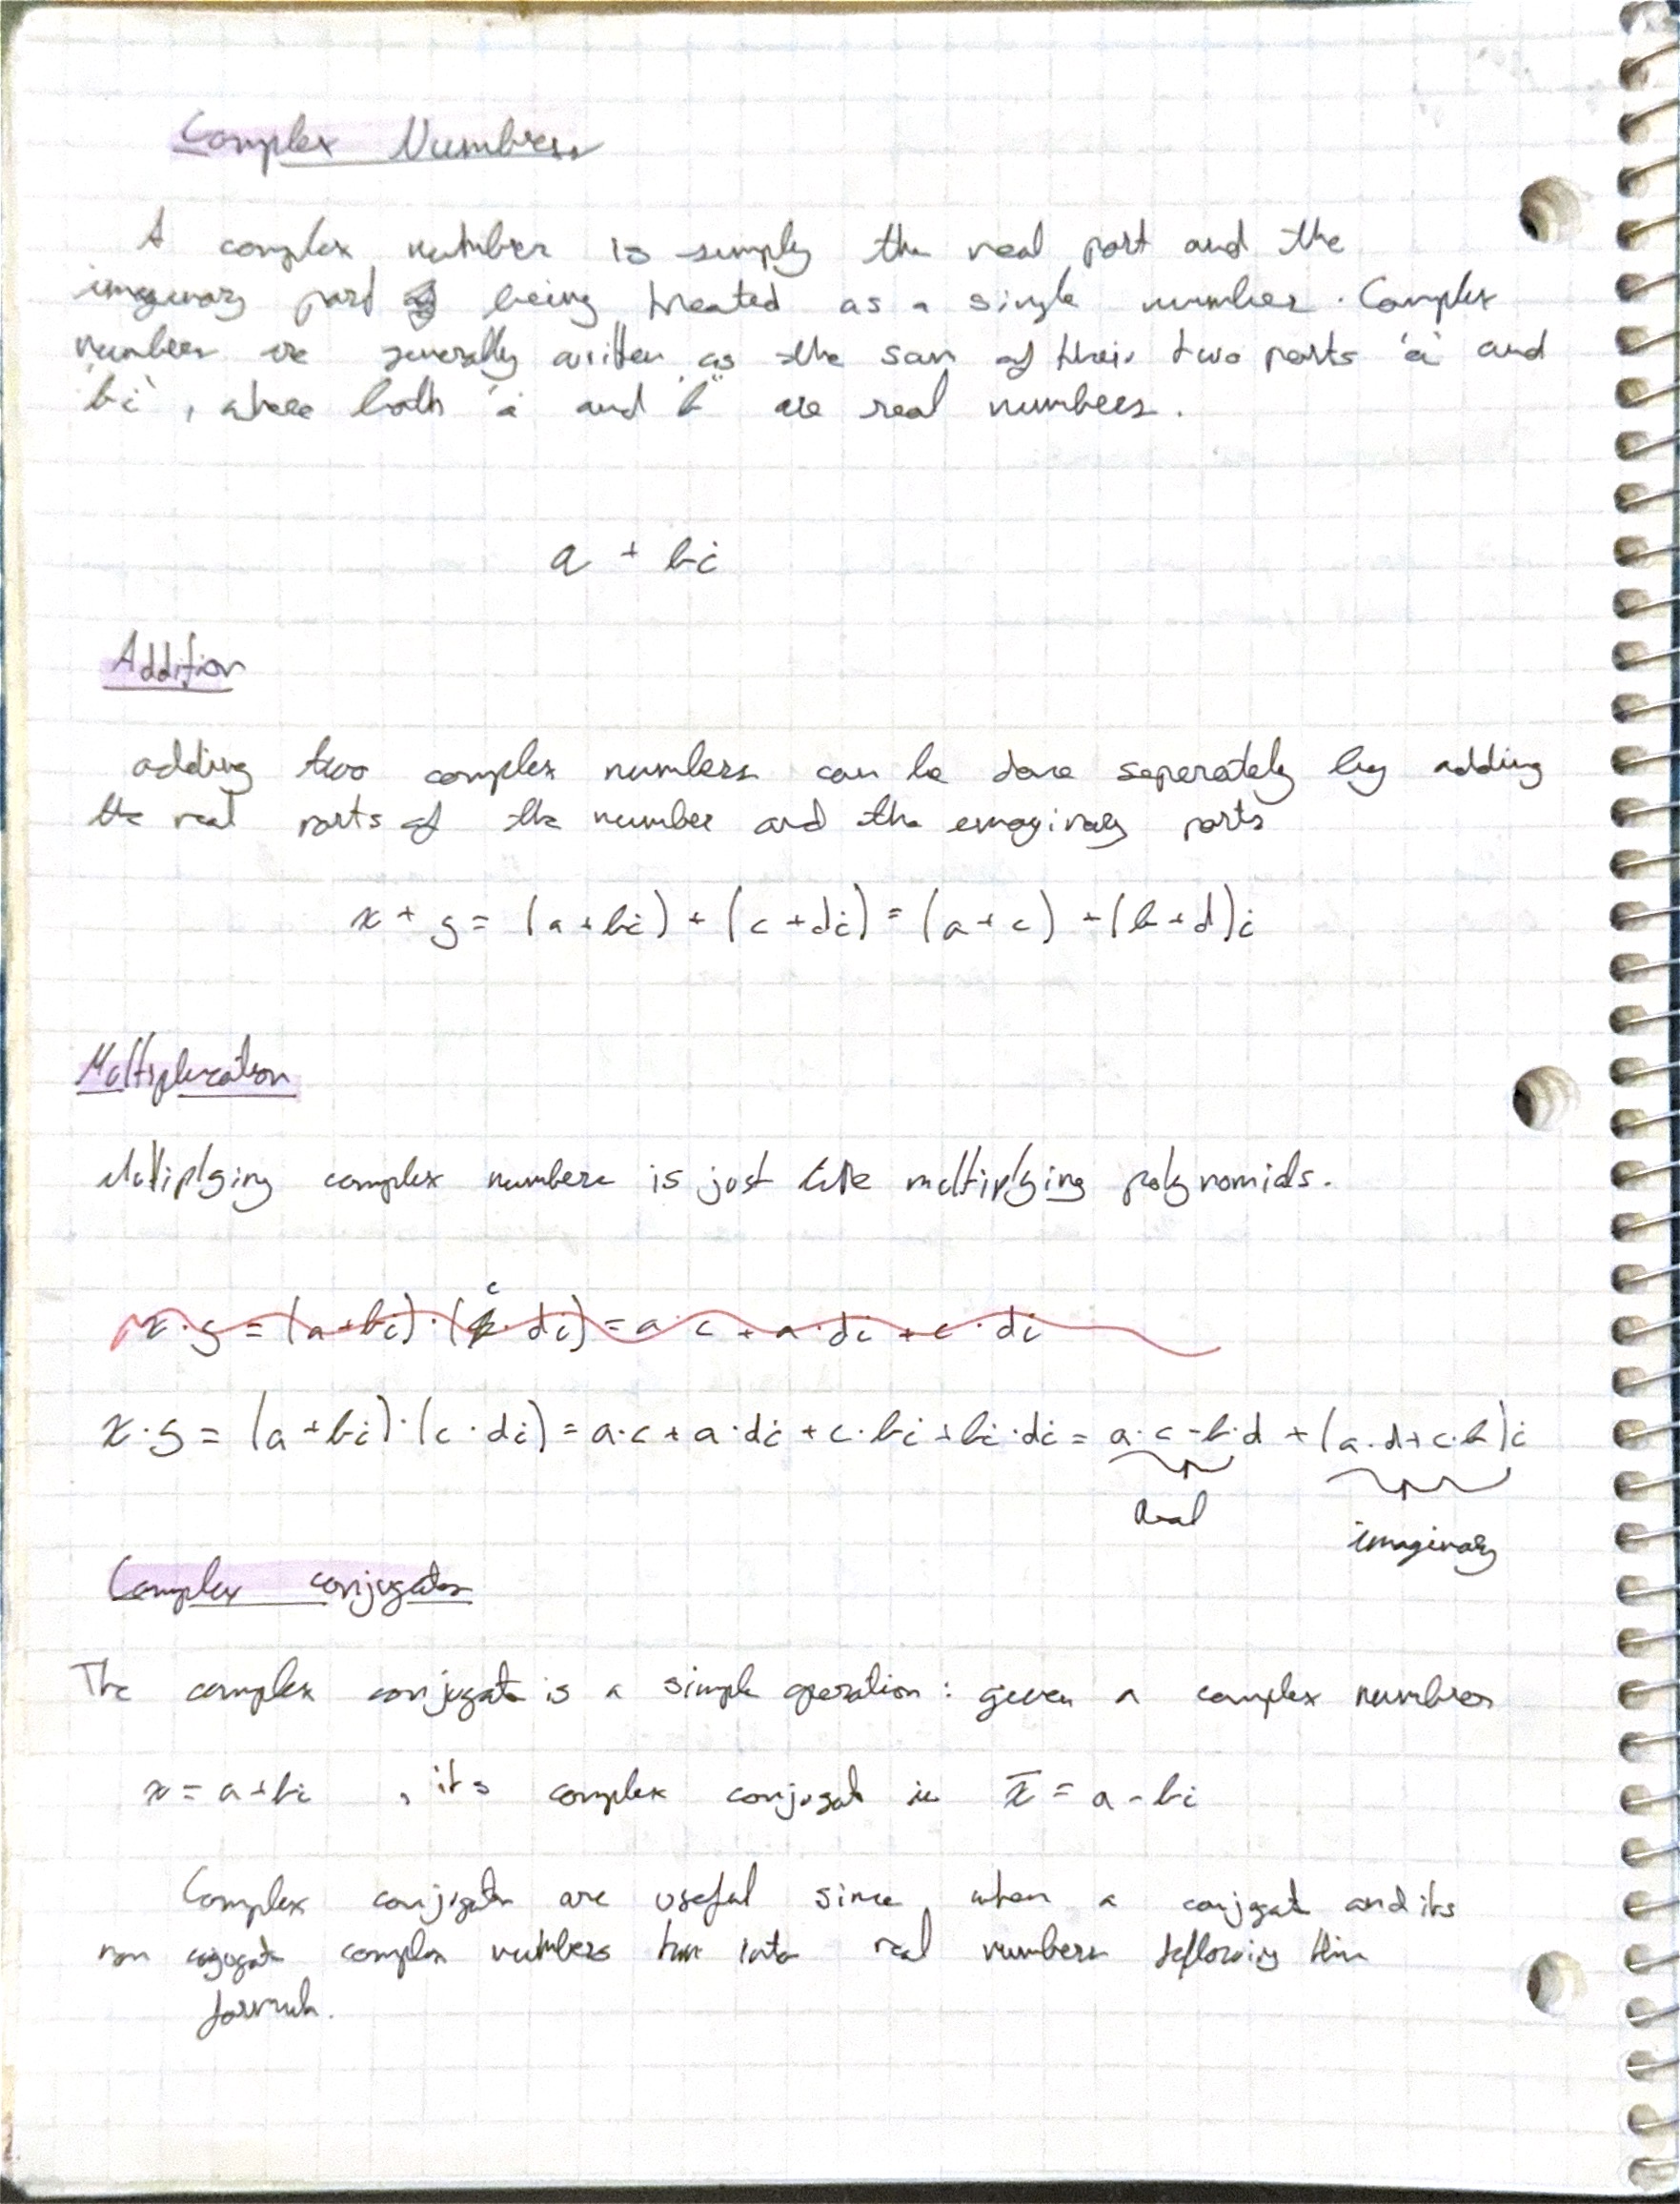 Complex Numbers
A complex number is simply the real part and the
imaginary part being treated as a single number. Complex
numbers are generally written as the sum of their two parts 'a' and
'bi', where both 'a' and 'b' are real numbers.
a + bi
Addition
adding two complex numbers can be done seperately by adding
the real parts of the number and the emaginary parts
x + y = (a + bi) + (c + di) = (a + c) + (b + d)i
Multiplication
Multiplying complex numbers is just like multiplying polynomials.
x · y = (a + bi) · (c · di) = a · c + a · di + c · di
x · y = (a + bi) · (c · di) = a·c + a·di + c·bi + bi·di = a·c - b·d + (a·d + c·b)i
Real
imaginary
Complex conjugates
The complex conjugate is a simple operation: given a complex number
x = a + bi , it's complex conjugate is x̄ = a - bi
Complex conjugates are useful since when a conjugate and its
non cojugate complex numbers turn into real numbers following this
formula.